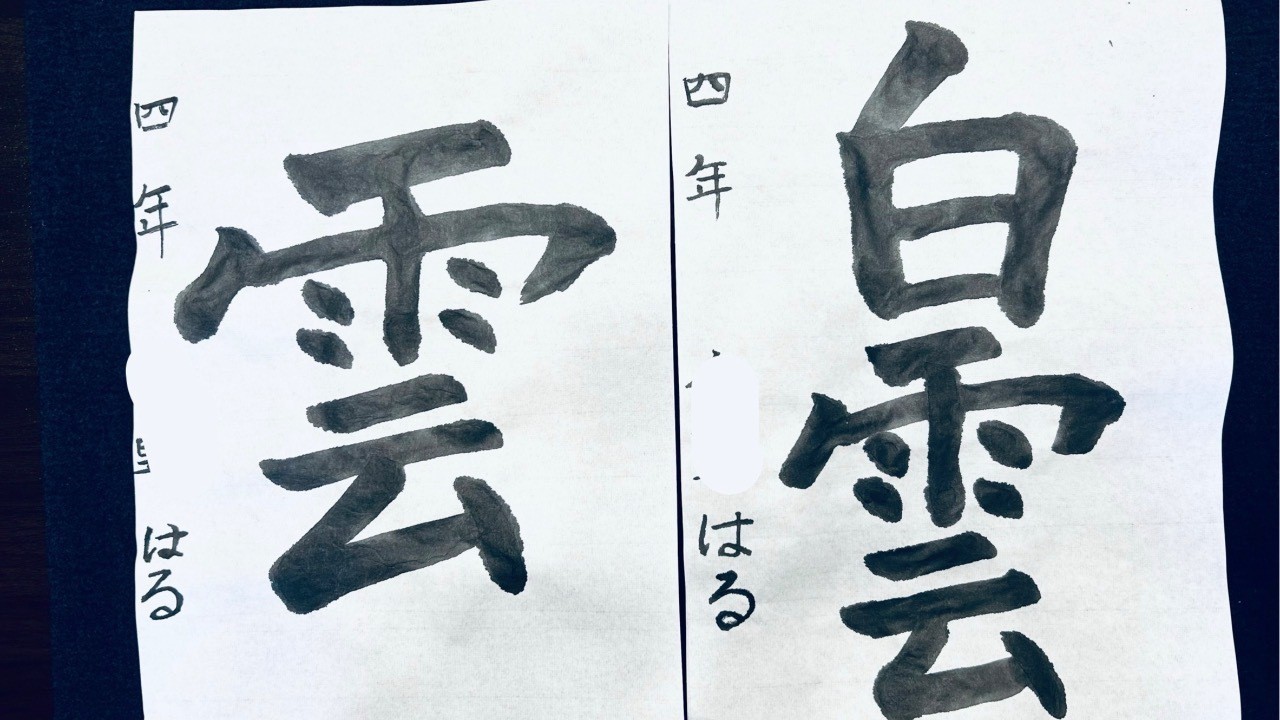 白雲
四年 はる
雲
四年 はる